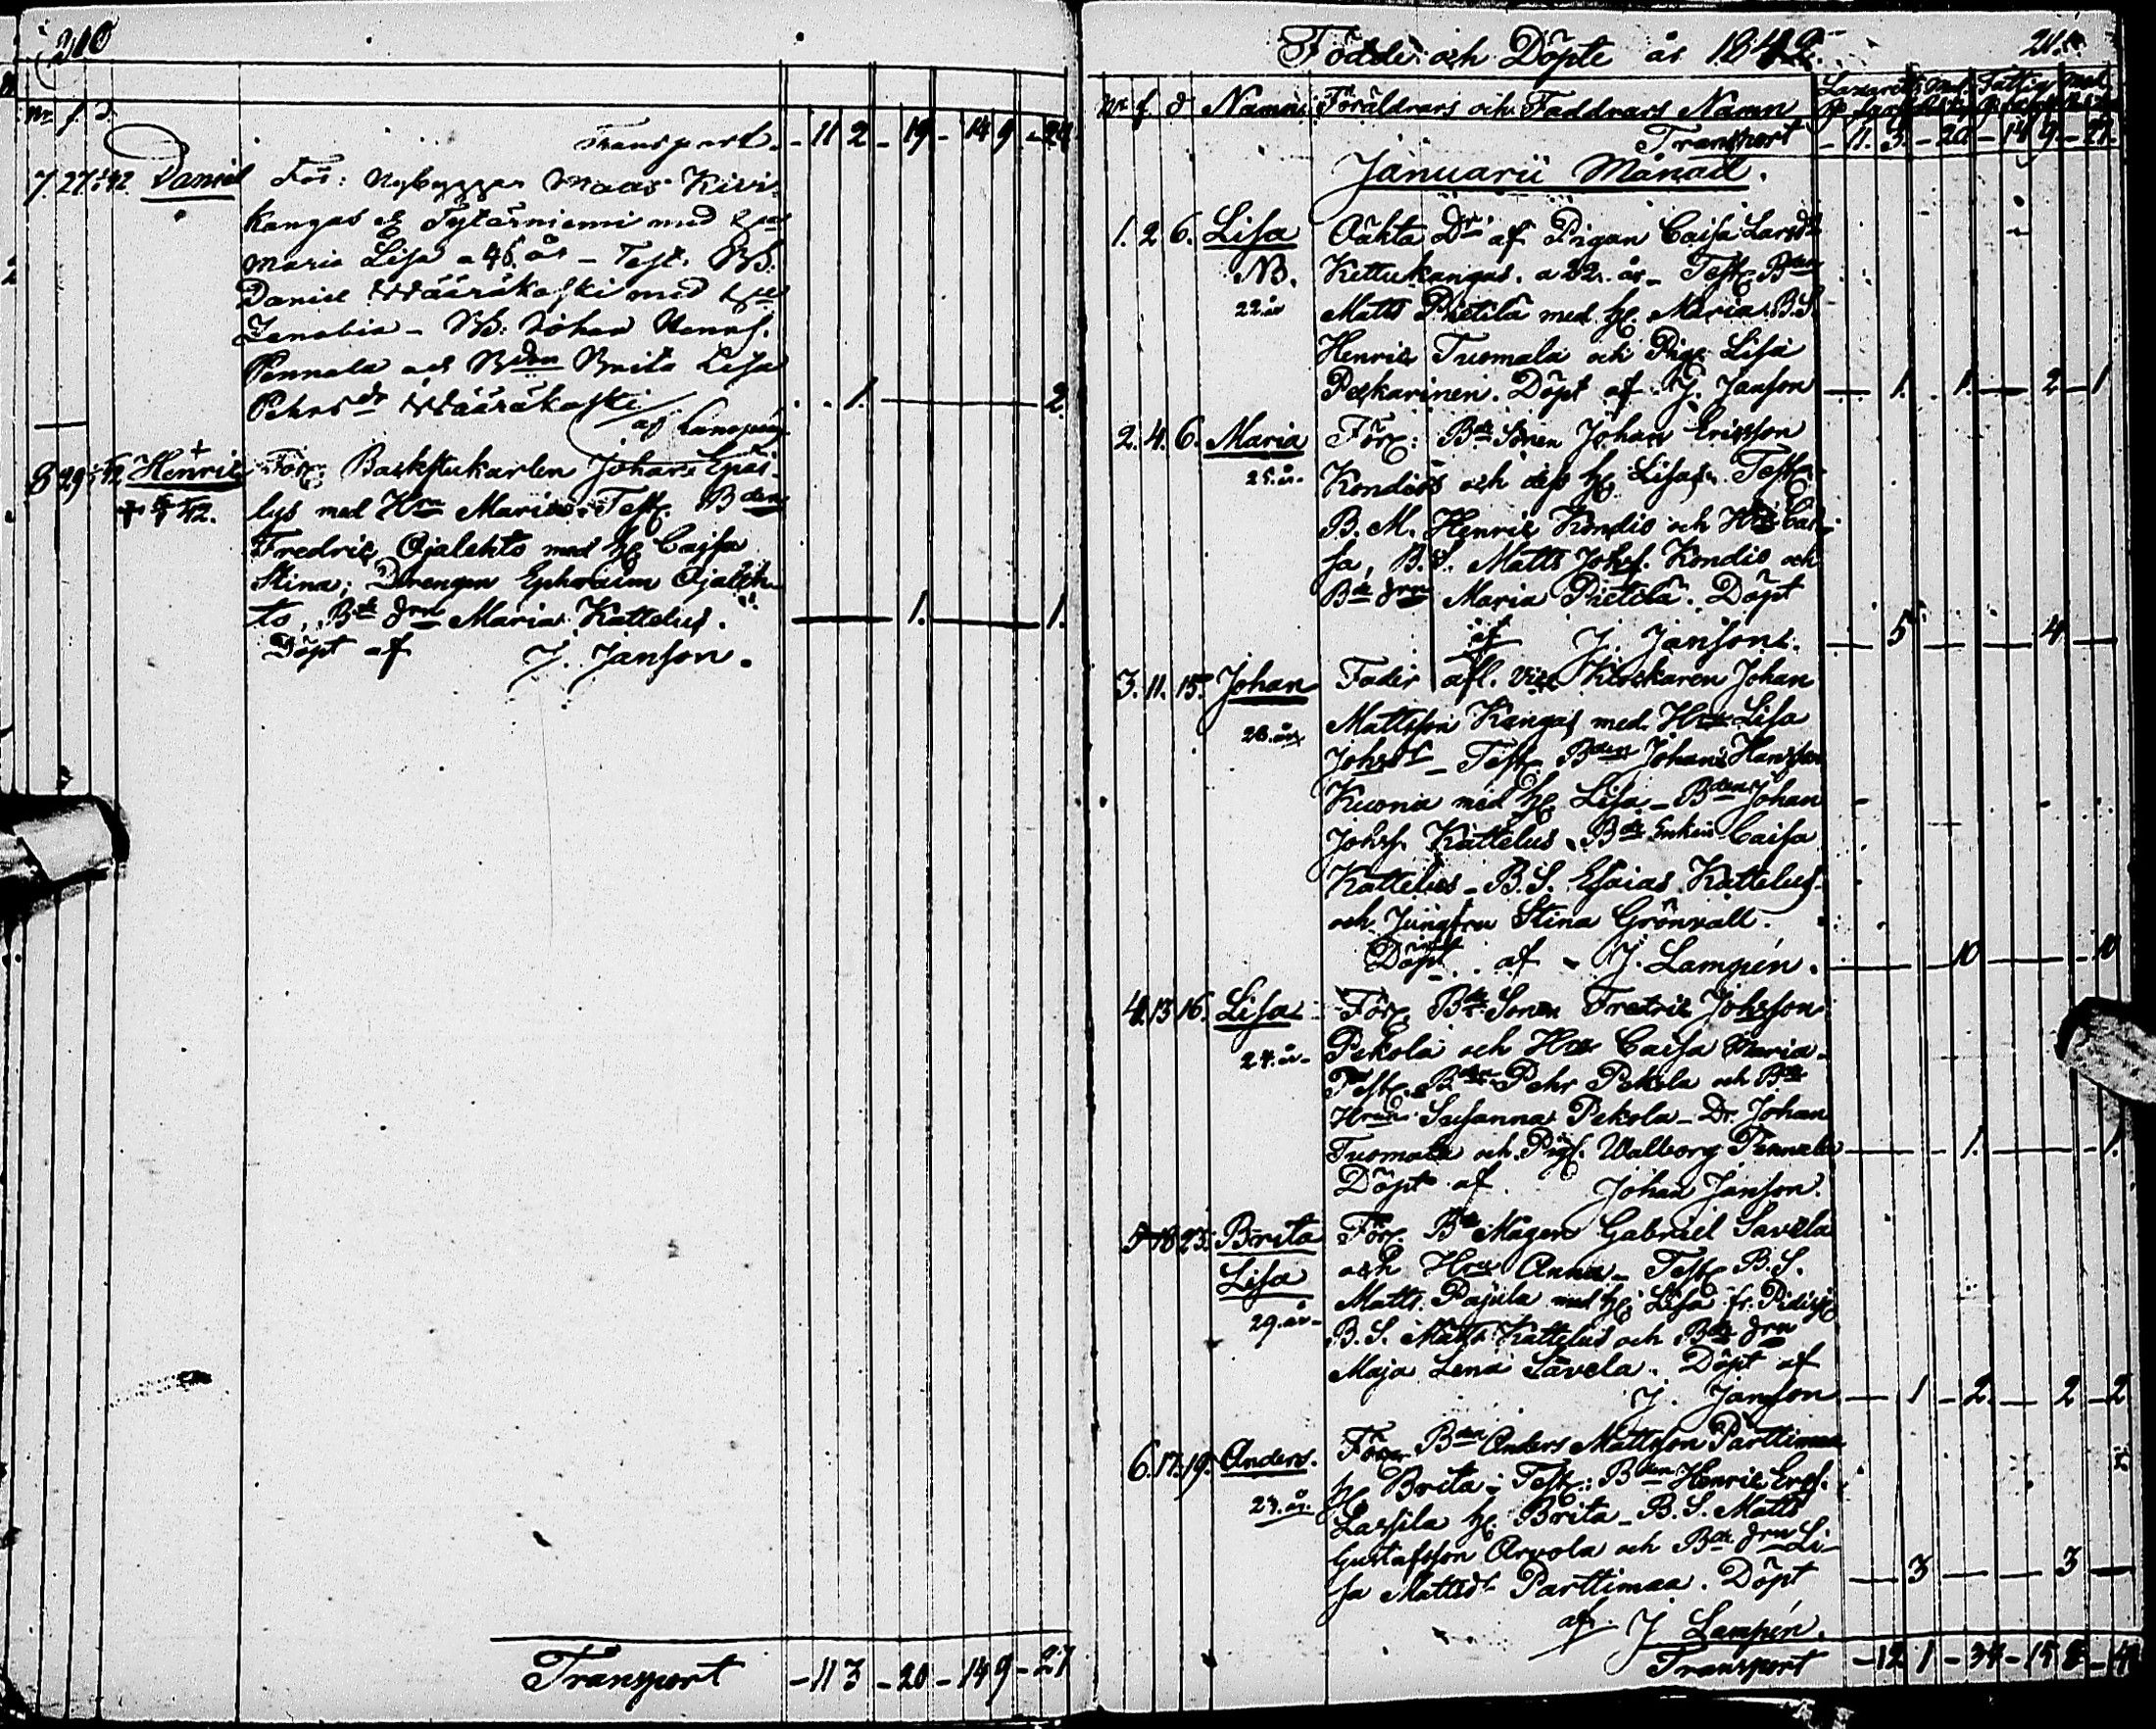 210
Nr f. d.
Transport. - 11 2 - 19 - 14 9 - 24
7. 27. 1/2 Daniel För: Nybyggar Maas Kivi-
kangas Tytärniemi med
Maria Lisa a 45 år - Test.
Daniel Wääräkoski med
Zenobia - Johan
Pennala och Brita Lisa
Pehrsdr Wääräkoski - 1 - 2
af Lampén
8 29 Henric För: Backstukarlen Johan
lys med Hru Maria. Test. Bden
Fredric Ojalehto med H. Cajsa
Stina; Drengen Ephraim Ojaleh-
to, Bde drn Maria Kattelus. - 1. - 1.
Döpt af J. Janson.
Transport - 11 3 - 20 - 14 9 - 27
Födde och Döpte år 1842. 211.
Nr f. d Namn. Föräldrars och Faddrars Namn
Transport - 11. 3. - 20 - 14 9 - 27.
Januarii Månad.
1. 2. 6. Lisa Oäkta Dr af Pigan Caisa Larsdr
NB. Kettukangas. a 22. år - Test. Bden
22 år Matts Pietilä med H. Maria. B.S.
Henric Tuomala och Pig. Lisa
Peskarinen. Döpt af J. Janson - 1. 1. - 2 - 1
2. 4. 6. Maria För: Bde Sonen Johan Ericsson
25. år. Kondis och dess H. Lisa. Test.
B. M. Henric Kondis och Hru Cai-
sa, B.S. Matts Johs. Kondis och
Bde drn Maria Pietilä. Döpt
af J. Janson. - 5 - 4 -
3. 11. 15. Johan Fader afl. Vice Klockaren Johan
Mattsson Kangas med Hru Lisa
28. år Johsdr - Test. Bden Johan Hansson
Kuona med H. Lisa - Bden Johan
Johs. Kattelus. Bde Enkan Caisa
Kattelus - B.S. Esaias Kattelus
och Jungfru Stina Grönvall.
Döpt af J. Lampén. - 10 - 10
4. 13 16. Lisa För. Bde Sonen Fredric Johsson
24. år - Pekola och Hru Caisa Maria -
Test. Bden Pehr Pekola och Bde
Hrun Susanna Pekola - Dr. Johan
Tuomala och Pig. Walborg Pennala - 1. - 1.
Döpt af Johan Janson.
5 18 23. Brita För. Bde Mågen Gabriel Savela
Lisa och Hru Anna - Test. B.S.
Matts Pajula med H. Lisa fr.
29. år - B.S. Matts Kattelus och Bde drn
Maja Lena Savela. Döpt af
J. Janson - 1 - 2. - 2 - 2
6. 17. 19. Anders. För Bden Anders Mattsson Parttimaa
H. Brita - Test.: Bden Henric Ers.
23. år. Lassila H. Brita - B.S. Matts
Gustafsson Arvola och Bde drn Li-
sa Mattsdr Parttimaa. Döpt - 3 - 3 -
af J Lampén.
Transport - 12 1 - 34 - 15 8 -